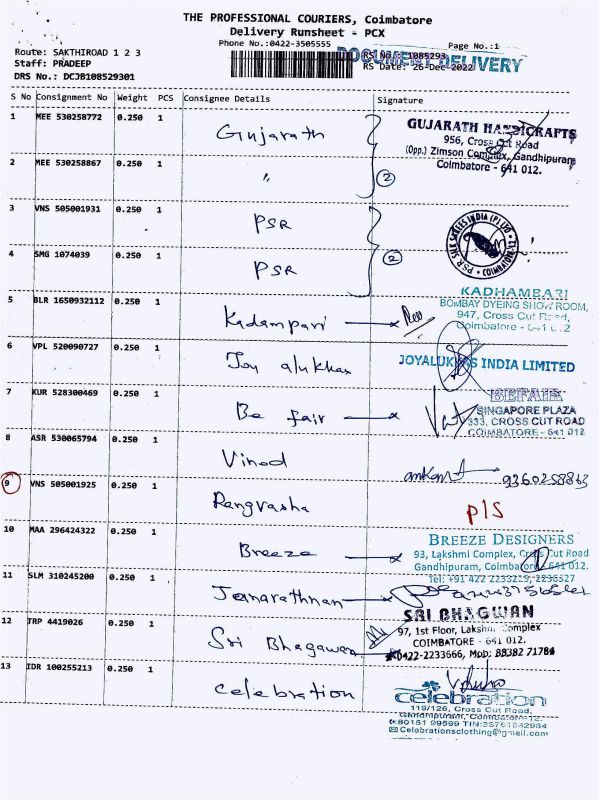 THE PROFESSIONAL COURIERS, Coimbatore
Delivery Runsheet - PCX
Phone No.:0422-3505555
Page No.:1
DOCUMENT DELIVERY
Route: SAKTHIROAD 1 2 3
RS No.: 1085293
Staff: PRADEEP
RS Date: 26-Dec-2022
DRS No.: DCJB108529301
S No Consignment No Weight PCS Consignee Details Signature
1 MEE 530258772 0.250 1 Gujarath
GUJARATH HANDICRAFTS
956, Cross Cut Road
(Opp.) Zimson Complex, Gandhipuram
Coimbatore - 641 012.
2 MEE 530258867 0.250 1 "
2
3 VNS 505001931 0.250 1 PSR
PSR SILK SAREES INDIA (P) LTD
COIMBATORE-12
4 SMG 1074039 0.250 1 PSR
2
5 BLR 1650932112 0.250 1 Kadampari
KADHAMBARI
BOMBAY DYEING SHOW ROOM,
947, Cross Cut Road,
Coimbatore - 641 012
6 VPL 520090727 0.250 1 Joy alukkas
JOYALUKKAS INDIA LIMITED
7 KUR 528300469 0.250 1 Be fair
BEFAIR
SINGAPORE PLAZA
333, CROSS CUT ROAD
COIMBATORE - 641 012
8 ASR 530065794 0.250 1 Vinod
9360258863
9 VNS 505001925 0.250 1 Rangvasha
P/S
10 MAA 296424322 0.250 1 Breeze
BREEZE DESIGNERS
93, Lakshmi Complex, Cross Cut Road
Gandhipuram, Coimbatore - 641 012.
Tel: +91 422 2233219, 2236327
11 SLM 310245200 0.250 1 Janarathnan
12 TRP 4419026 0.250 1 Sri Bhagawan
SRI BHAGWAN
97, 1st Floor, Lakshmi Complex
COIMBATORE - 641 012.
0422-2233666, Mob: 88382 71784
13 IDR 100255213 0.250 1 Celebration
celebration
119/126, Cross Cut Road,
Gandhipuram, Coimbatore-12.
Celebrationsclothing@gmail.com